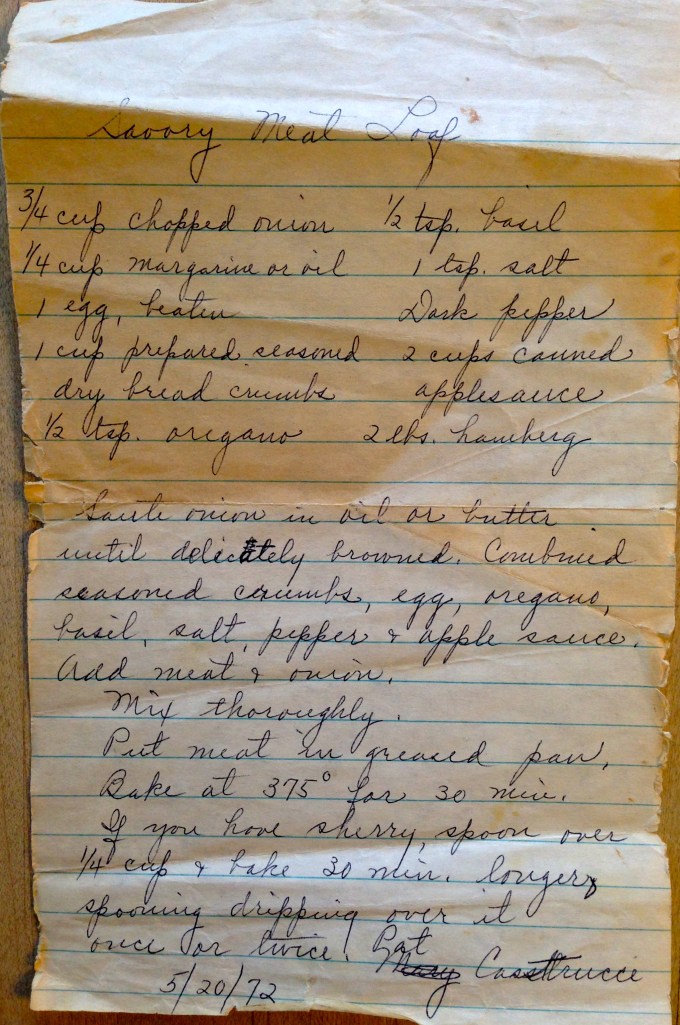 Savory Meat Loaf
3/4 cup chopped onion 1/2 tsp. basil
1/4 cup margarine or oil 1 tsp. salt
1 egg, beaten Dash pepper
1 cup prepared seasoned 2 cups canned
dry bread crumbs applesauce
1/2 tsp. oregano 2 lbs. hamberg
Saute onion in oil or butter
until delicately browned. Combined
seasoned crumbs, egg, oregano,
basil, salt, pepper & apple sauce.
Add meat & onion.
Mix thoroughly.
Put meat in greased pan.
Bake at 375° for 30 min.
If you have sherry, spoon over
1/4 cup & bake 30 min. longer
spooning dripping over it
once or twice. Pat
Mary Casttrucci
5/20/72